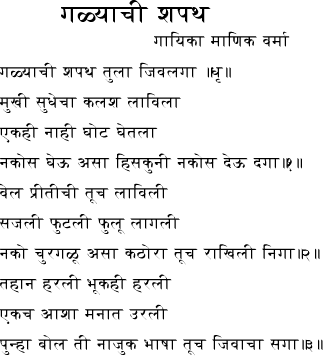 गळ्याची शपथ
गायिका माणिक वर्मा
गळ्याची शपथ तुला जिवलगा ॥धृ॥
मुखी सुधेचा कलश लाविला
एकही नाही घोट घेतला
नकोस घेऊ असा हिसकुनी नकोस देऊ दगा॥१॥
वेल प्रीतीची तूच लाविली
सजली फुटली फुलू लागली
नको चुरगळू असा कठोरा तूच राखिली निगा॥२॥
तहान हरली भूकही हरली
एकच आशा मनात उरली
पुन्हा बोल ती नाजुक भाषा तूच जिवाचा सगा॥३॥